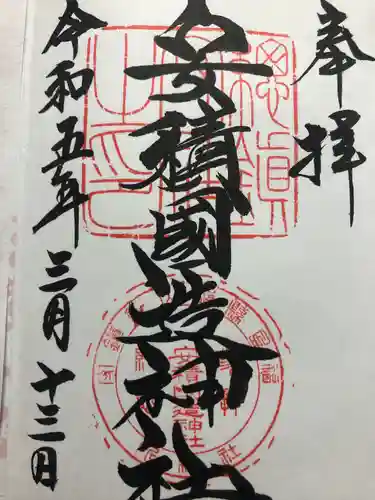 奉拝
安積國造神社
令和五年三月十三日